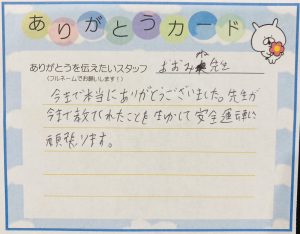 ありがとうカード
ありがとうを伝えたいスタッフ
(フルネームでお願いします！)
あおみ 先生
今まで本当にありがとうございました。先生が
今まで教えてくれたことを生かして安全運転に
頑張ります。